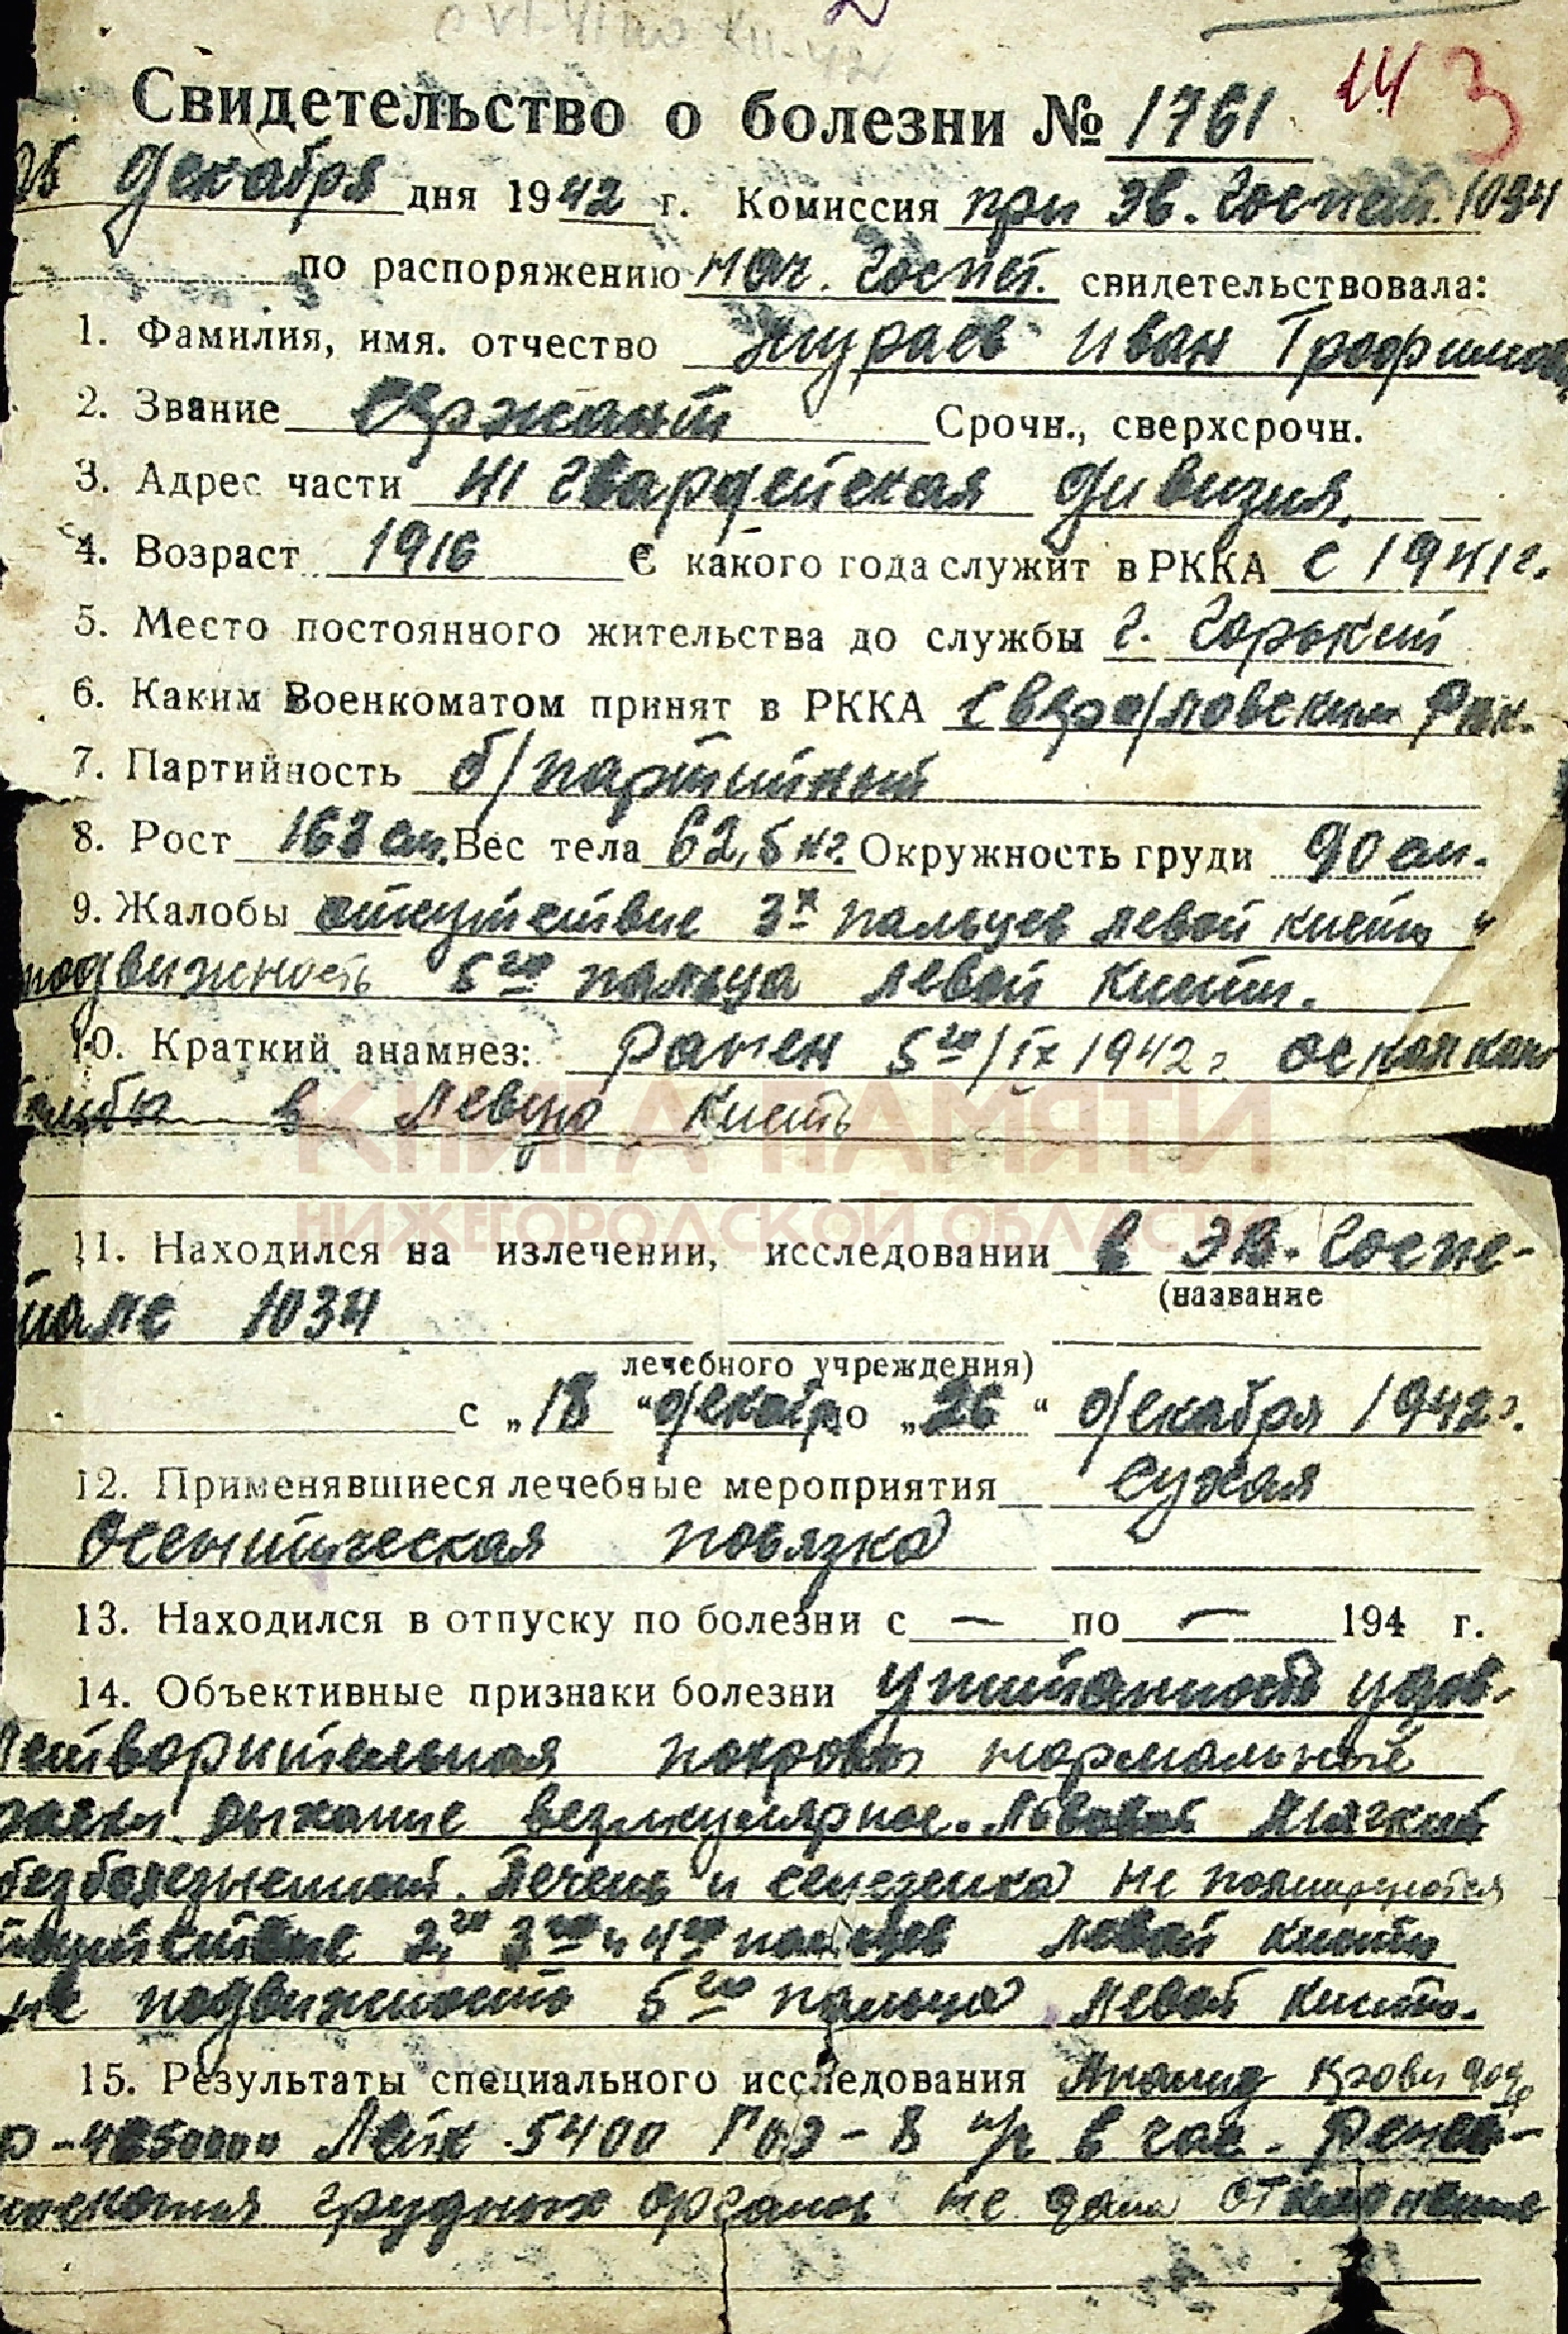 Свидетельство о болезни № 1761
14 3
26 декабря дня 1942 г. Комиссия при эв. Госпит. 1034
по распоряжению нач. Госпит. свидетельствовала:
1. Фамилия, имя. отчество Жураев Иван Трофимов
2. Звание Сержант Срочн., сверхсрочн.
3. Адрес части 41 гвардейская дивизия
4. Возраст 1916 С какого года служит в РККА с 1941 г.
5. Место постоянного жительства до службы г. Горький
6. Каким Военкоматом принят в РККА Свердловским Рвк.
7. Партийность б/партийный
8. Рост 163 см. Вес тела 62,5 кг. Окружность груди 90 см.
9. Жалобы отсутствие 3х пальцев левой кисти и
подвижность 5го пальца левой кисти.
10. Краткий анамнез: Ранен 5го/IX 1942 г осколком
в левую кисть
КНИГА ПАМЯТИ
НИЖЕГОРОДСКОЙ ОБЛАСТИ
11. Находился на излечении, исследовании в эв. Госпи-
(название
тале 1034
лечебного учреждения)
с „18 “ декабр до „26 “ декабря 1942 г.
12. Применявшиеся лечебные мероприятия сухая
асептическая повязка
13. Находился в отпуску по болезни с — по — 194 г.
14. Объективные признаки болезни Упитанность удов-
летворительная покровы нормальные
дыхание везикулярное. Живот мягкий
безболезненный. Печень и селезенка не пальпируются
отсутствие 2го 3го и 4го пальцев левой кисти
не подвижность 5го пальца левой кисти.
15. Результаты специального исследования Анализ крови
Лейк 5400 РОЭ - 8 м/м в час. Рентге-
носкопия грудных органов не дала отклонение